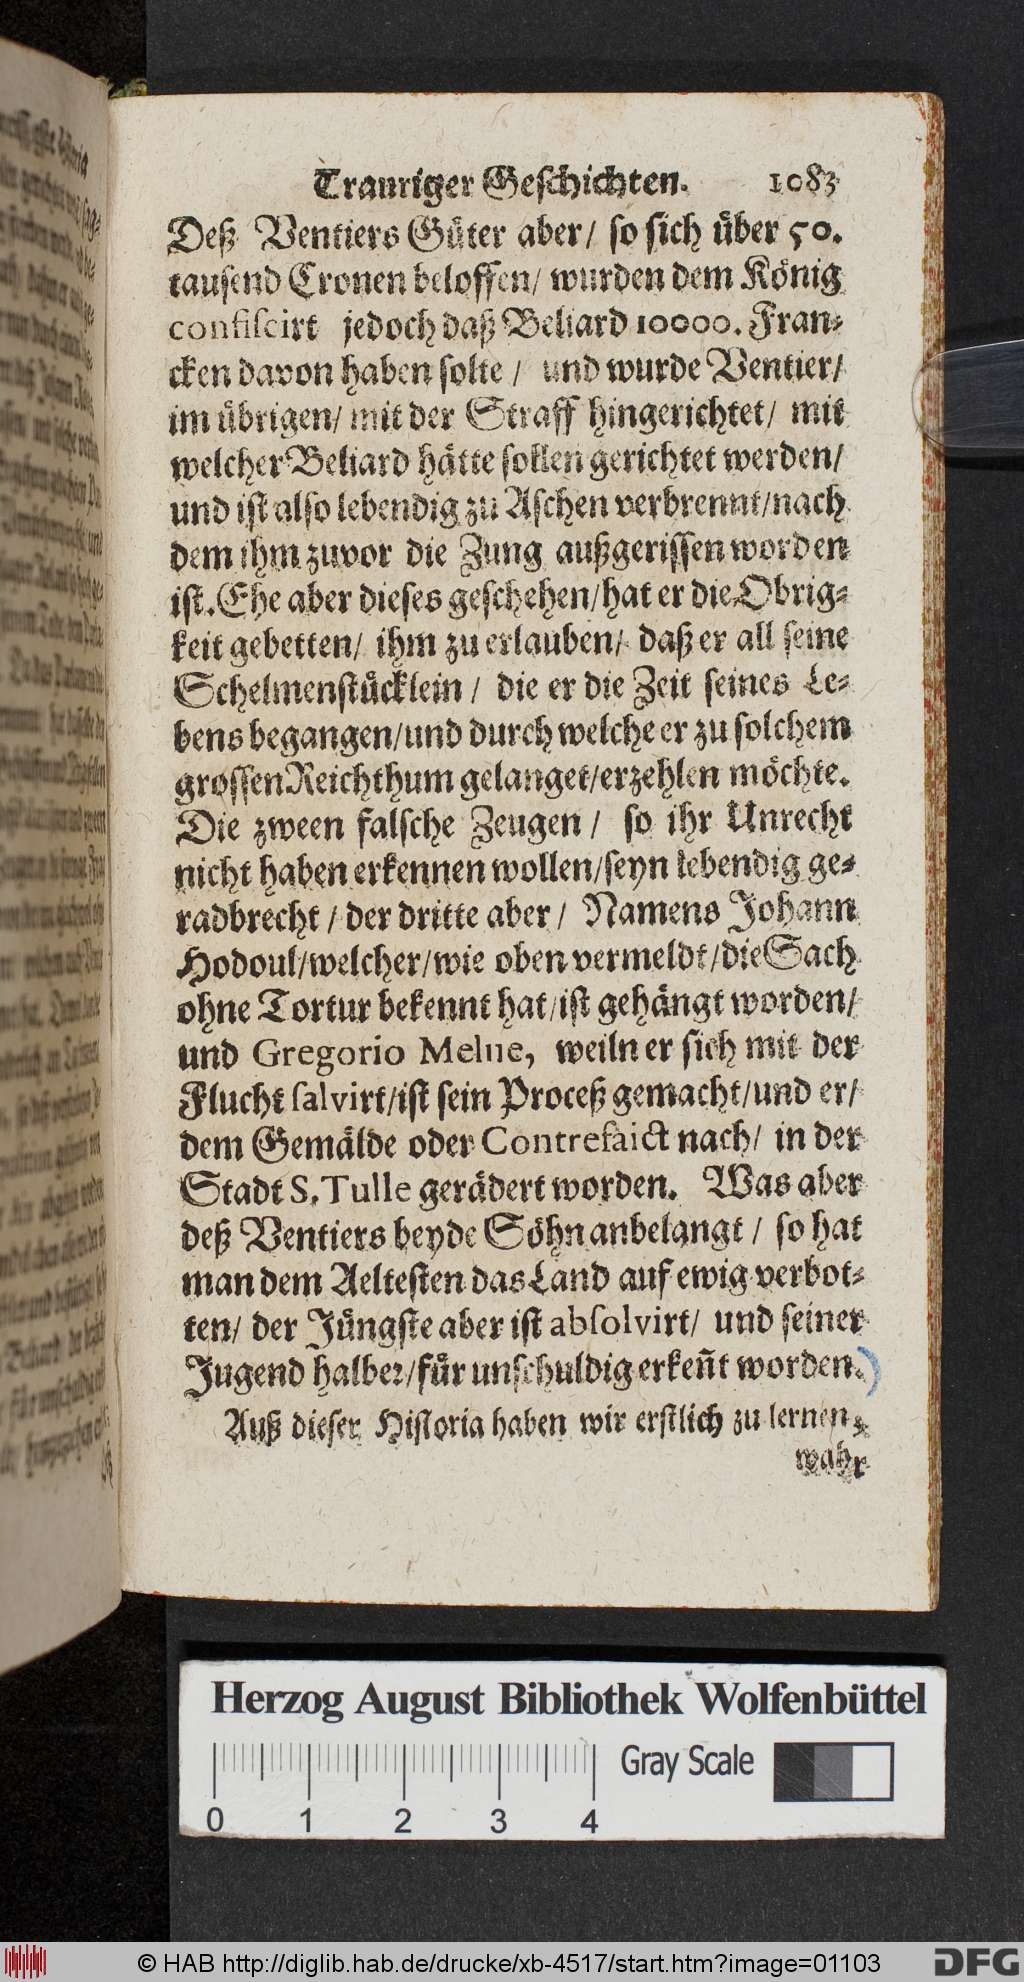 Trauriger Geschichten. 1083
Deß Ventiers Güter aber/ so sich über 50.
tausend Cronen beloffen/ wurden dem König
confiscirt jedoch daß Beliard 10000. Fran-
cken davon haben solte / und wurde Ventier/
im übrigen/ mit der Straff hingerichtet/ mit
welcher Beliard hätte sollen gerichtet werden/
und ist also lebendig zu Aschen verbrennt/nach
dem ihm zuvor die Zung außgerissen worden
ist. Ehe aber dieses geschehen/hat er die Obrig-
keit gebetten/ ihm zu erlauben/ daß er all seine
Schelmenstücklein / die er die Zeit seines Le-
bens begangen/und durch welche er zu solchem
grossen Reichthum gelanget/erzehlen möchte.
Die zween falsche Zeugen / so ihr Unrecht
nicht haben erkennen wollen/seyn lebendig ge-
radbrecht / der dritte aber / Namens Johann
Hodoul/welcher/wie oben vermeldt/die Sach
ohne Tortur bekennt hat/ist gehängt worden/
und Gregorio Melue, weiln er sich mit der
Flucht salvirt/ist sein Proceß gemacht/und er/
dem Gemälde oder Contrefaict nach/ in der
Stadt S. Tulle gerädert worden. Was aber
deß Ventiers beyde Söhn anbelangt / so hat
man dem Aeltesten das Land auf ewig verbot-
ten/ der Jüngste aber ist absolvirt/ und seiner
Jugend halber/für unschuldig erkeñt worden.)
Auß dieser Historia haben wir erstlich zu lernen,
wahr
Herzog August Bibliothek Wolfenbüttel
Gray Scale
0 1 2 3 4
© HAB http://diglib.hab.de/drucke/xb-4517/start.htm?image=01103
DFG